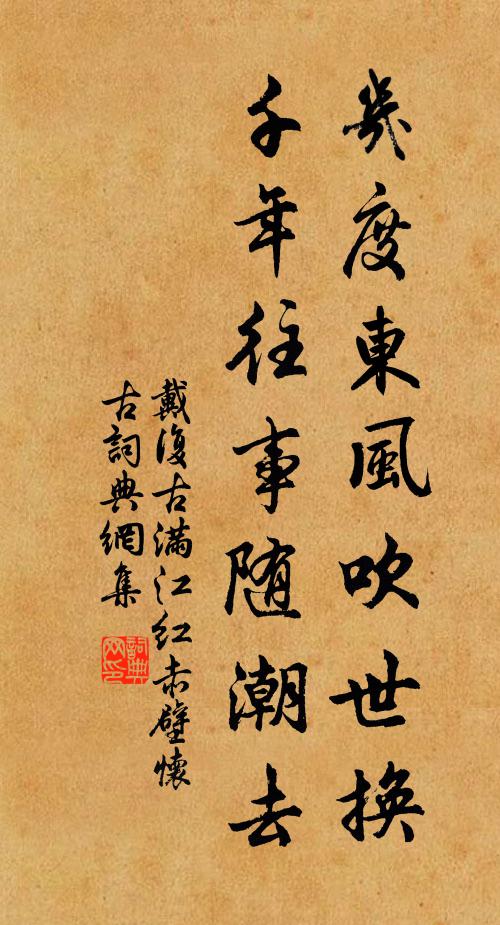 幾度東風吹世換
千年往事随潮去
戴復古滿江紅赤壁懷
古詞典網集
詞典
网印